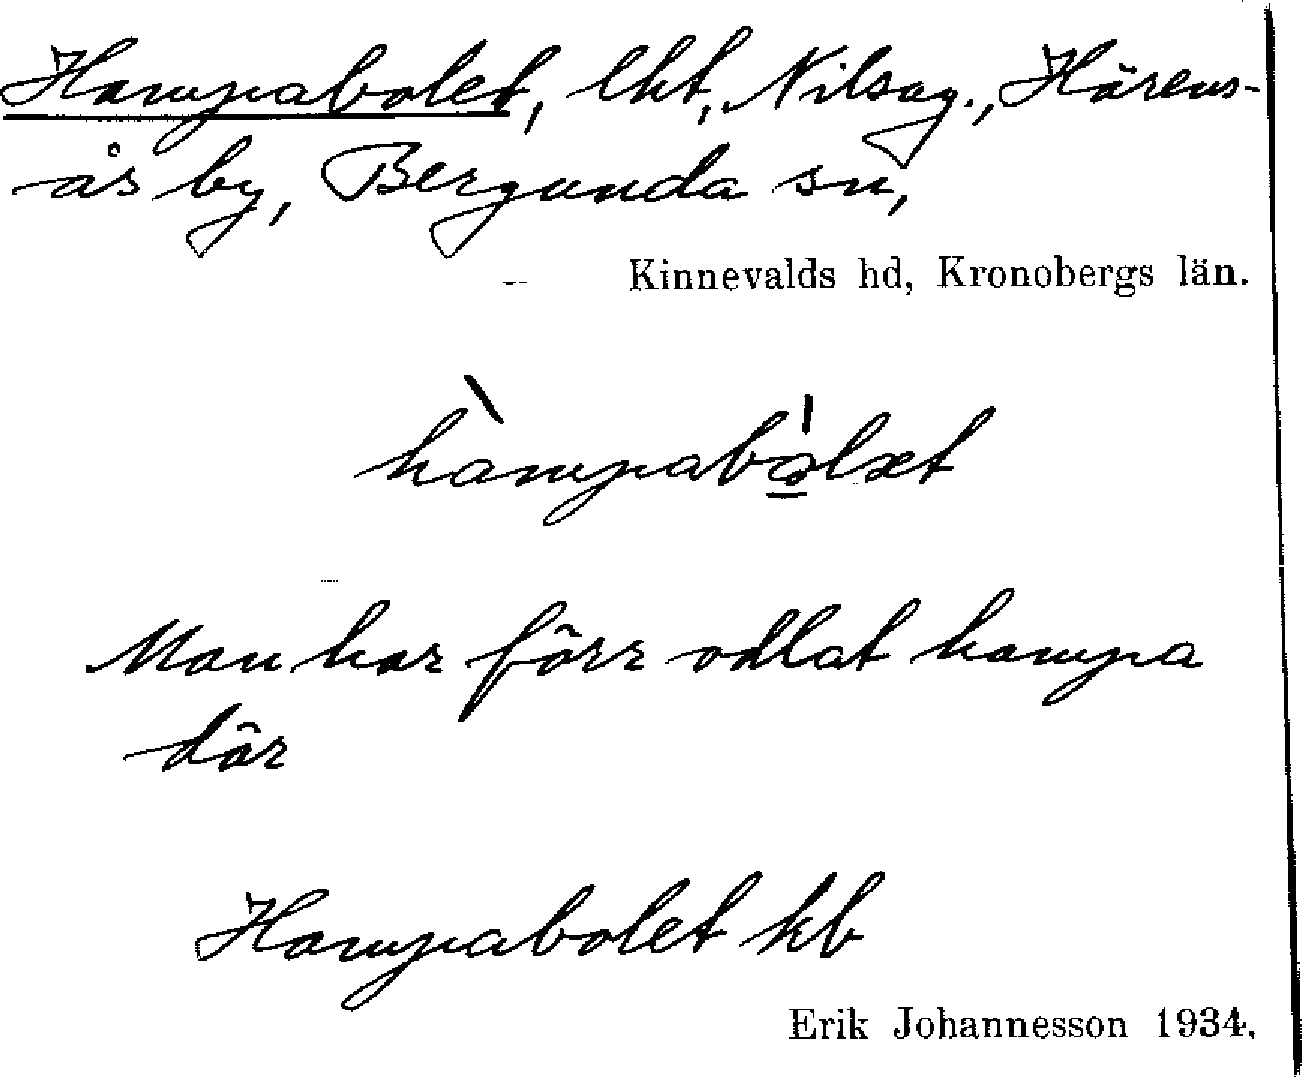 Hampabolet, lht, Nilsag., Härens-
ås by, Bergunda sn,
Kinnevalds hd, Kronobergs län.
hàmpabo̲̍lət
Man har förr odlat hampa
där
Hampabolet kb
Erik Johannesson 1934.